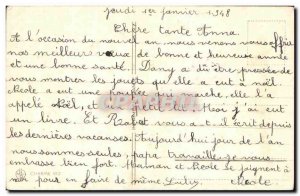 Jeudi 1er janvier 1948
Chère tante Anna.
A l'occasion du nouvel an nous venons vous offrir
nos meilleurs vœux de bonne et heureuse année
et une bonne santé. Dany a dû être pressée de
vous montrer les jouets qu'elle a eut à noël
Nicole a eut une poupée qui marche, elle l'a
appelé Noël, et Moi j'ai eut
un livre. Et vous a t-il écrit depuis
les dernières vacances. Aujourd'hui jour de l'an
nous sommes seules, papa travaille. Je vous
embrasse bien fort. Maman et Nicole se joignent à
moi pour en faire de même
Nicole.